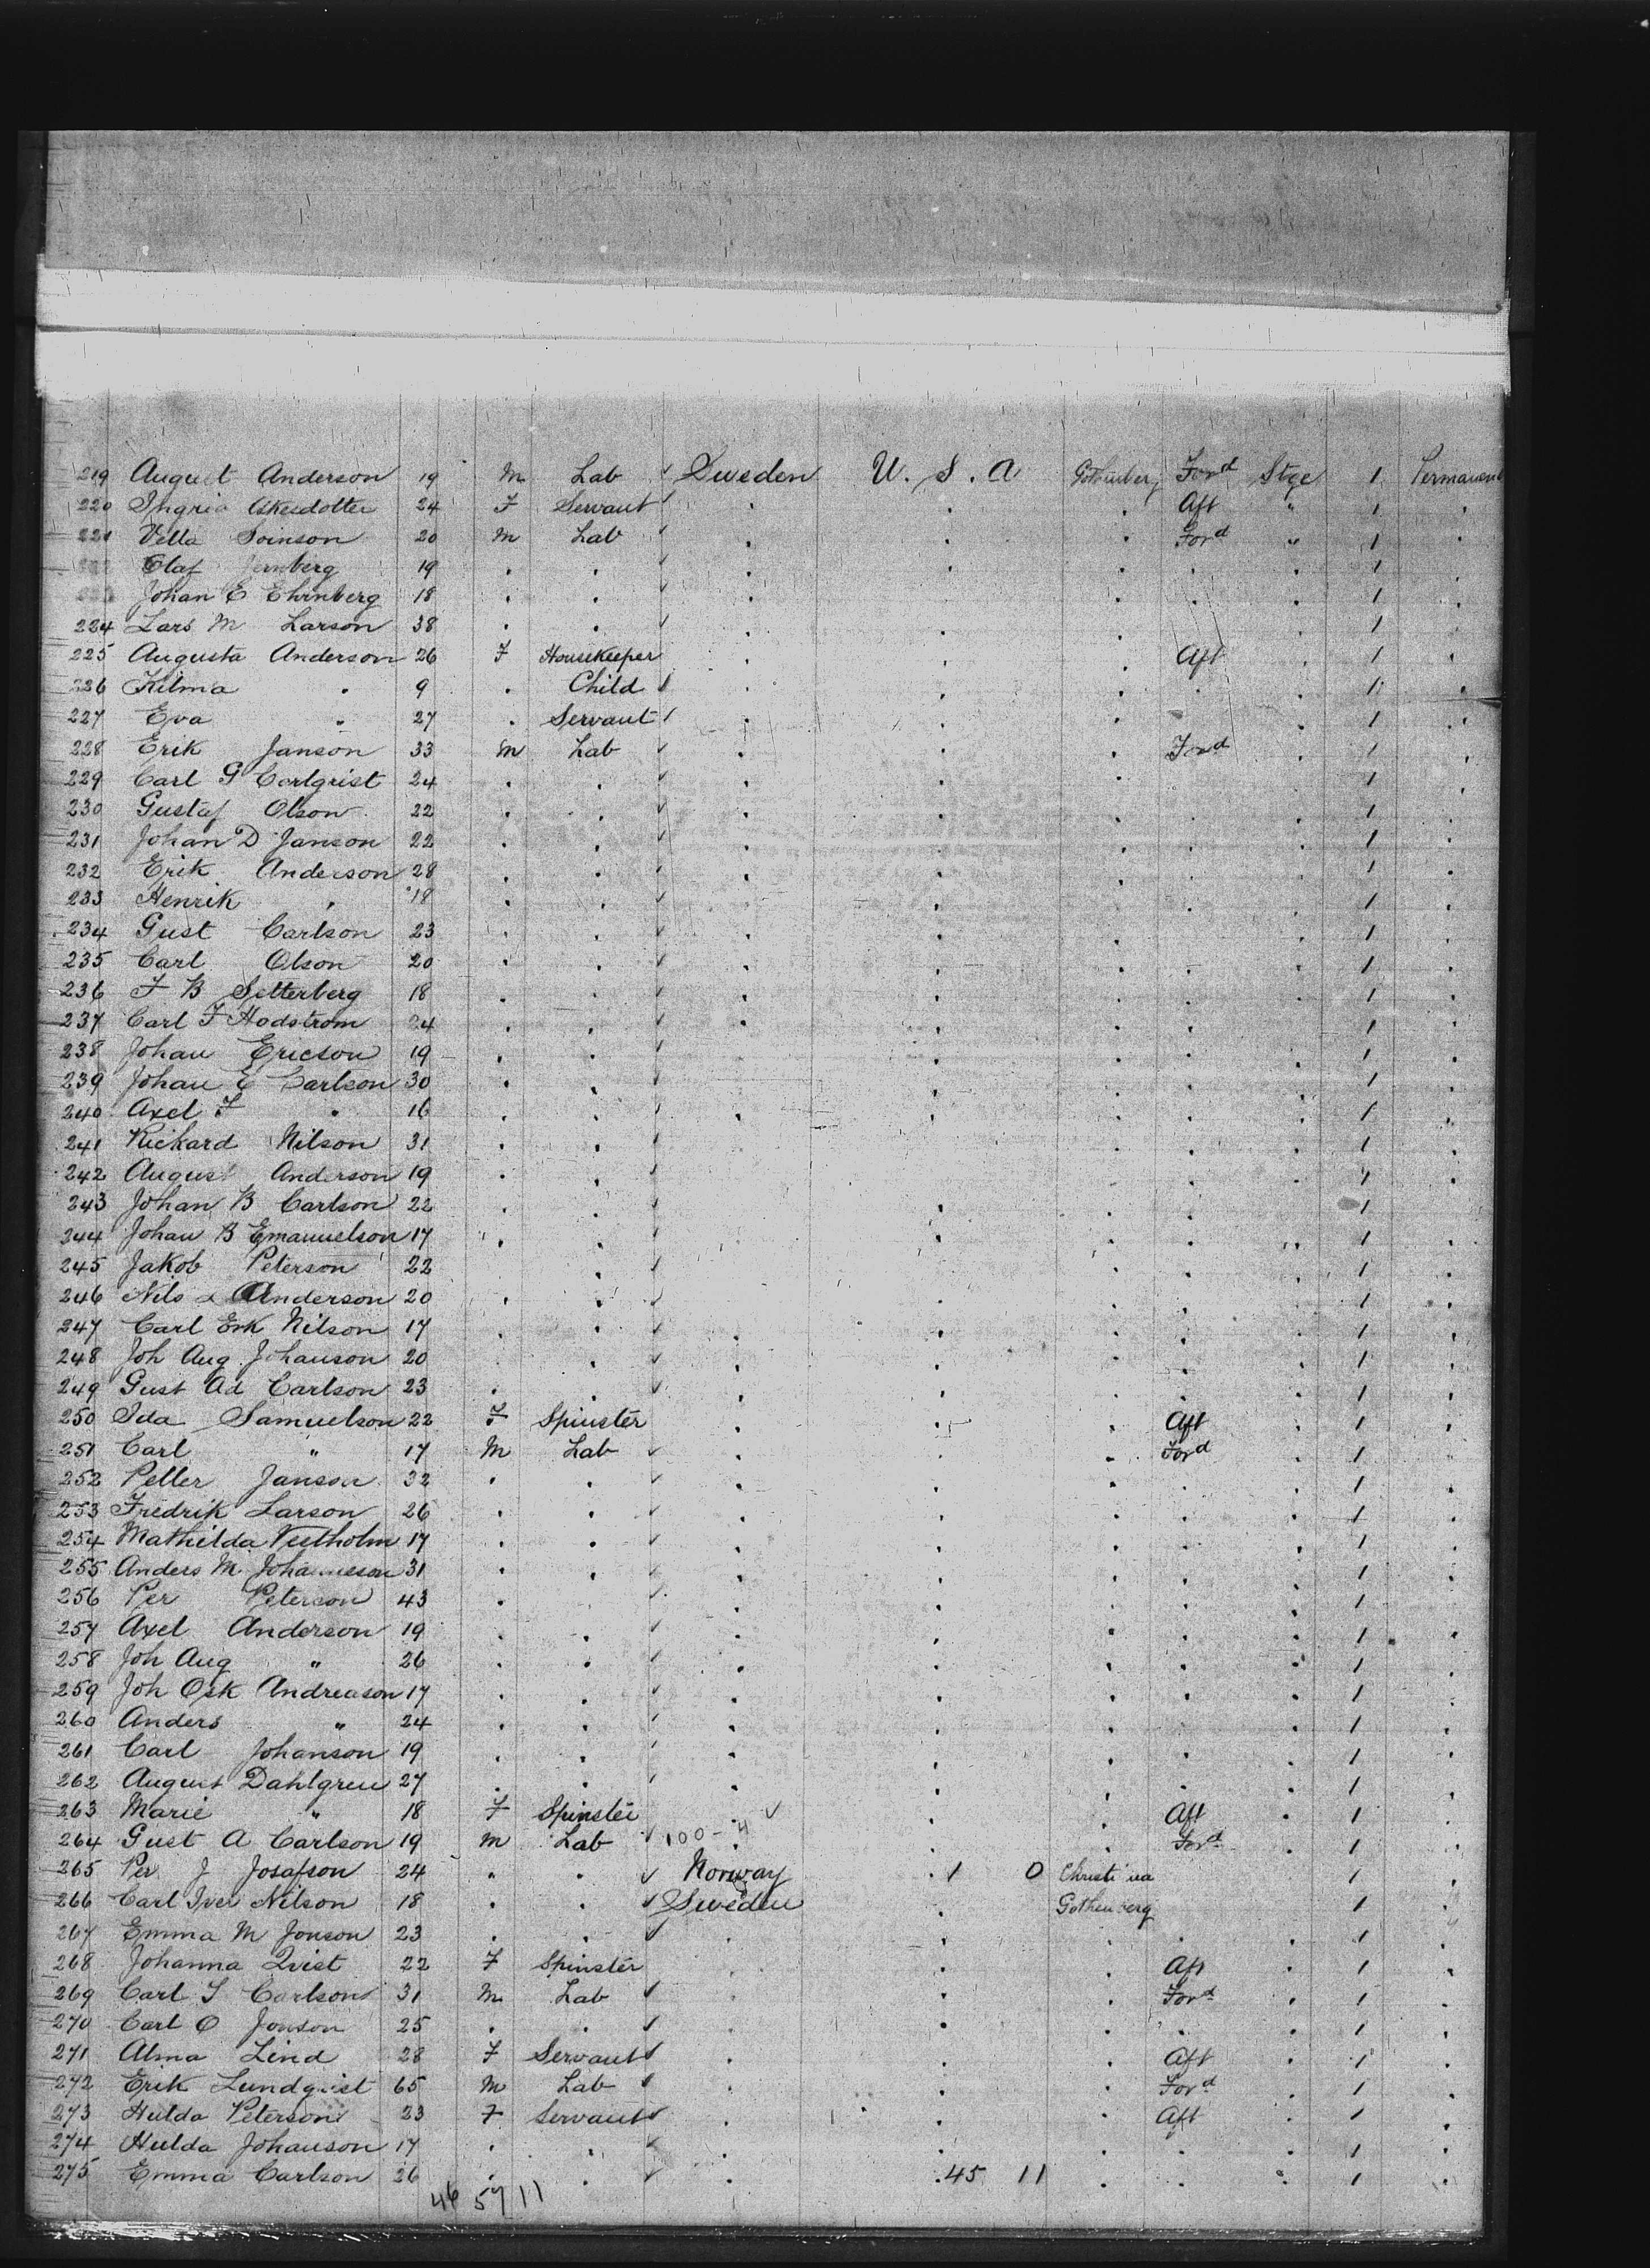 219 August Anderson 19 M Lab ✓ Sweden U. S. A Gothenberg Ford Stge 1 Permanent
220 Ingrid Eskesdotter 24 F Servant ✓ . . . Aft " 1 .
221 Vella Soinson 20 M Lab ✓ . . . Ford " 1 .
Olaf 19 . . ✓ . . . . . 1 .
Johan E Ehrnberg 18 . . ✓ . . . . . 1 .
224 Lars M Larson 38 . . ✓ . . . . . 1 .
225 Augusta Anderson 26 F Housekeeper . . . Aft . 1 .
226 Hilma . 9 . Child ✓ . . . . . 1 .
227 Eva . 27 . Servant ✓ . . . . . 1 .
228 Erik Janson 33 M Lab ✓ . . . Ford . 1 .
229 Carl G Carlqrist 24 . . ✓ . . . . . 1 .
230 Gustaf Olson 22 . . ✓ . . . . . 1 .
231 Johan D Janson 22 . . ✓ . . . . . 1 .
232 Erik Anderson 28 . . ✓ . . . . . 1 .
233 Henrik . 18 . . ✓ . . . . . 1 .
234 Gust Carlson 23 . . ✓ . . . . . 1 .
235 Carl Olson 20 . . ✓ . . . . . 1 .
236 F B Setterberg 18 . . ✓ . . . . . 1 .
237 Carl F Hodstrom 24 . . ✓ . . . . . 1 .
238 Johan Ericson 19 . . ✓ . . . . . 1 .
239 Johan E Carlson 30 . . ✓ . . . . . 1 .
240 Axel F . 16 . . ✓ . . . . . 1 .
241 Rickard Nilson 31 . . ✓ . . . . . 1 .
242 August Anderson 19 . . ✓ . . . . . 1 .
243 Johan B Carlson 22 . . ✓ . . . . . 1 .
244 Johan B Emanuelson 17 . . ✓ . . . . " 1 .
245 Jakob Peterson 22 . ✓ . . . . . 1 .
246 Nils Anderson 20 . . ✓ . . . . . 1 .
247 Carl Erk Nilson 17 . . ✓ . . . . . 1 .
248 Joh Aug Johanson 20 . . ✓ . . . . . 1 .
249 Gust Ad Carlson 23 . . ✓ . . . . . 1 .
250 Ida Samuelson 22 F Spinster . . . Aft . 1 .
251 Carl " 17 M Lab ✓ . . . Ford . 1 .
252 Petter Janson 32 . . ✓ . . . . . 1 .
253 Fredrik Larson 26 . . ✓ . . . . . 1 .
254 Mathilda 17 . . ✓ . . . . . 1 .
255 Anders M Johanneson 31 . . ✓ . . . . . 1 .
256 Per Peterson 43 . . ✓ . . . . . 1 .
257 Axel Anderson 19 . . ✓ . . . . . 1 .
258 Joh Aug " 26 . . ✓ . . . . . 1 .
259 Joh Osk Andreason 17 . . ✓ . . . . . 1 .
260 Anders " 24 . . ✓ . . . . . 1 .
261 Carl Johanson 19 . . ✓ . . . . . 1 .
262 August Dahlgren 27 . . ✓ . . . . . 1 .
263 Marie " 18 F Spinster . ✓ . . Aft . 1 .
264 Gust A Carlson 19 M Lab ✓ 100-4 . . Ford . 1 .
265 Per J Josafson 24 " . ✓ Norway . 1 0 Christi na 1 .
266 Carl Iver Nilson 18 . . ✓ Sweden . Gothenberg 1 .
267 Emma M Jonson 23 . . ✓ . . . . . 1 .
268 Johanna Qvist 22 F Spinster . . . Aft . 1 .
269 Carl S Carlson 31 M Lab ✓ . . . Ford . 1 .
270 Carl O Jonson 25 . . ✓ . . . . . 1 .
271 Alma Lind 28 F Servant ✓ . . . Aft . 1 .
272 Erik Lundqvist 65 M Lab ✓ . . . Ford . 1 .
273 Hulda Peterson 23 F Servant ✓ . . . Aft . 1 .
274 Hulda Johanson 17 . . ✓ . . . . . 1 .
275 Emma Carlson 26 . . ✓ . . 45 11 . . . 1 .
46 57 11